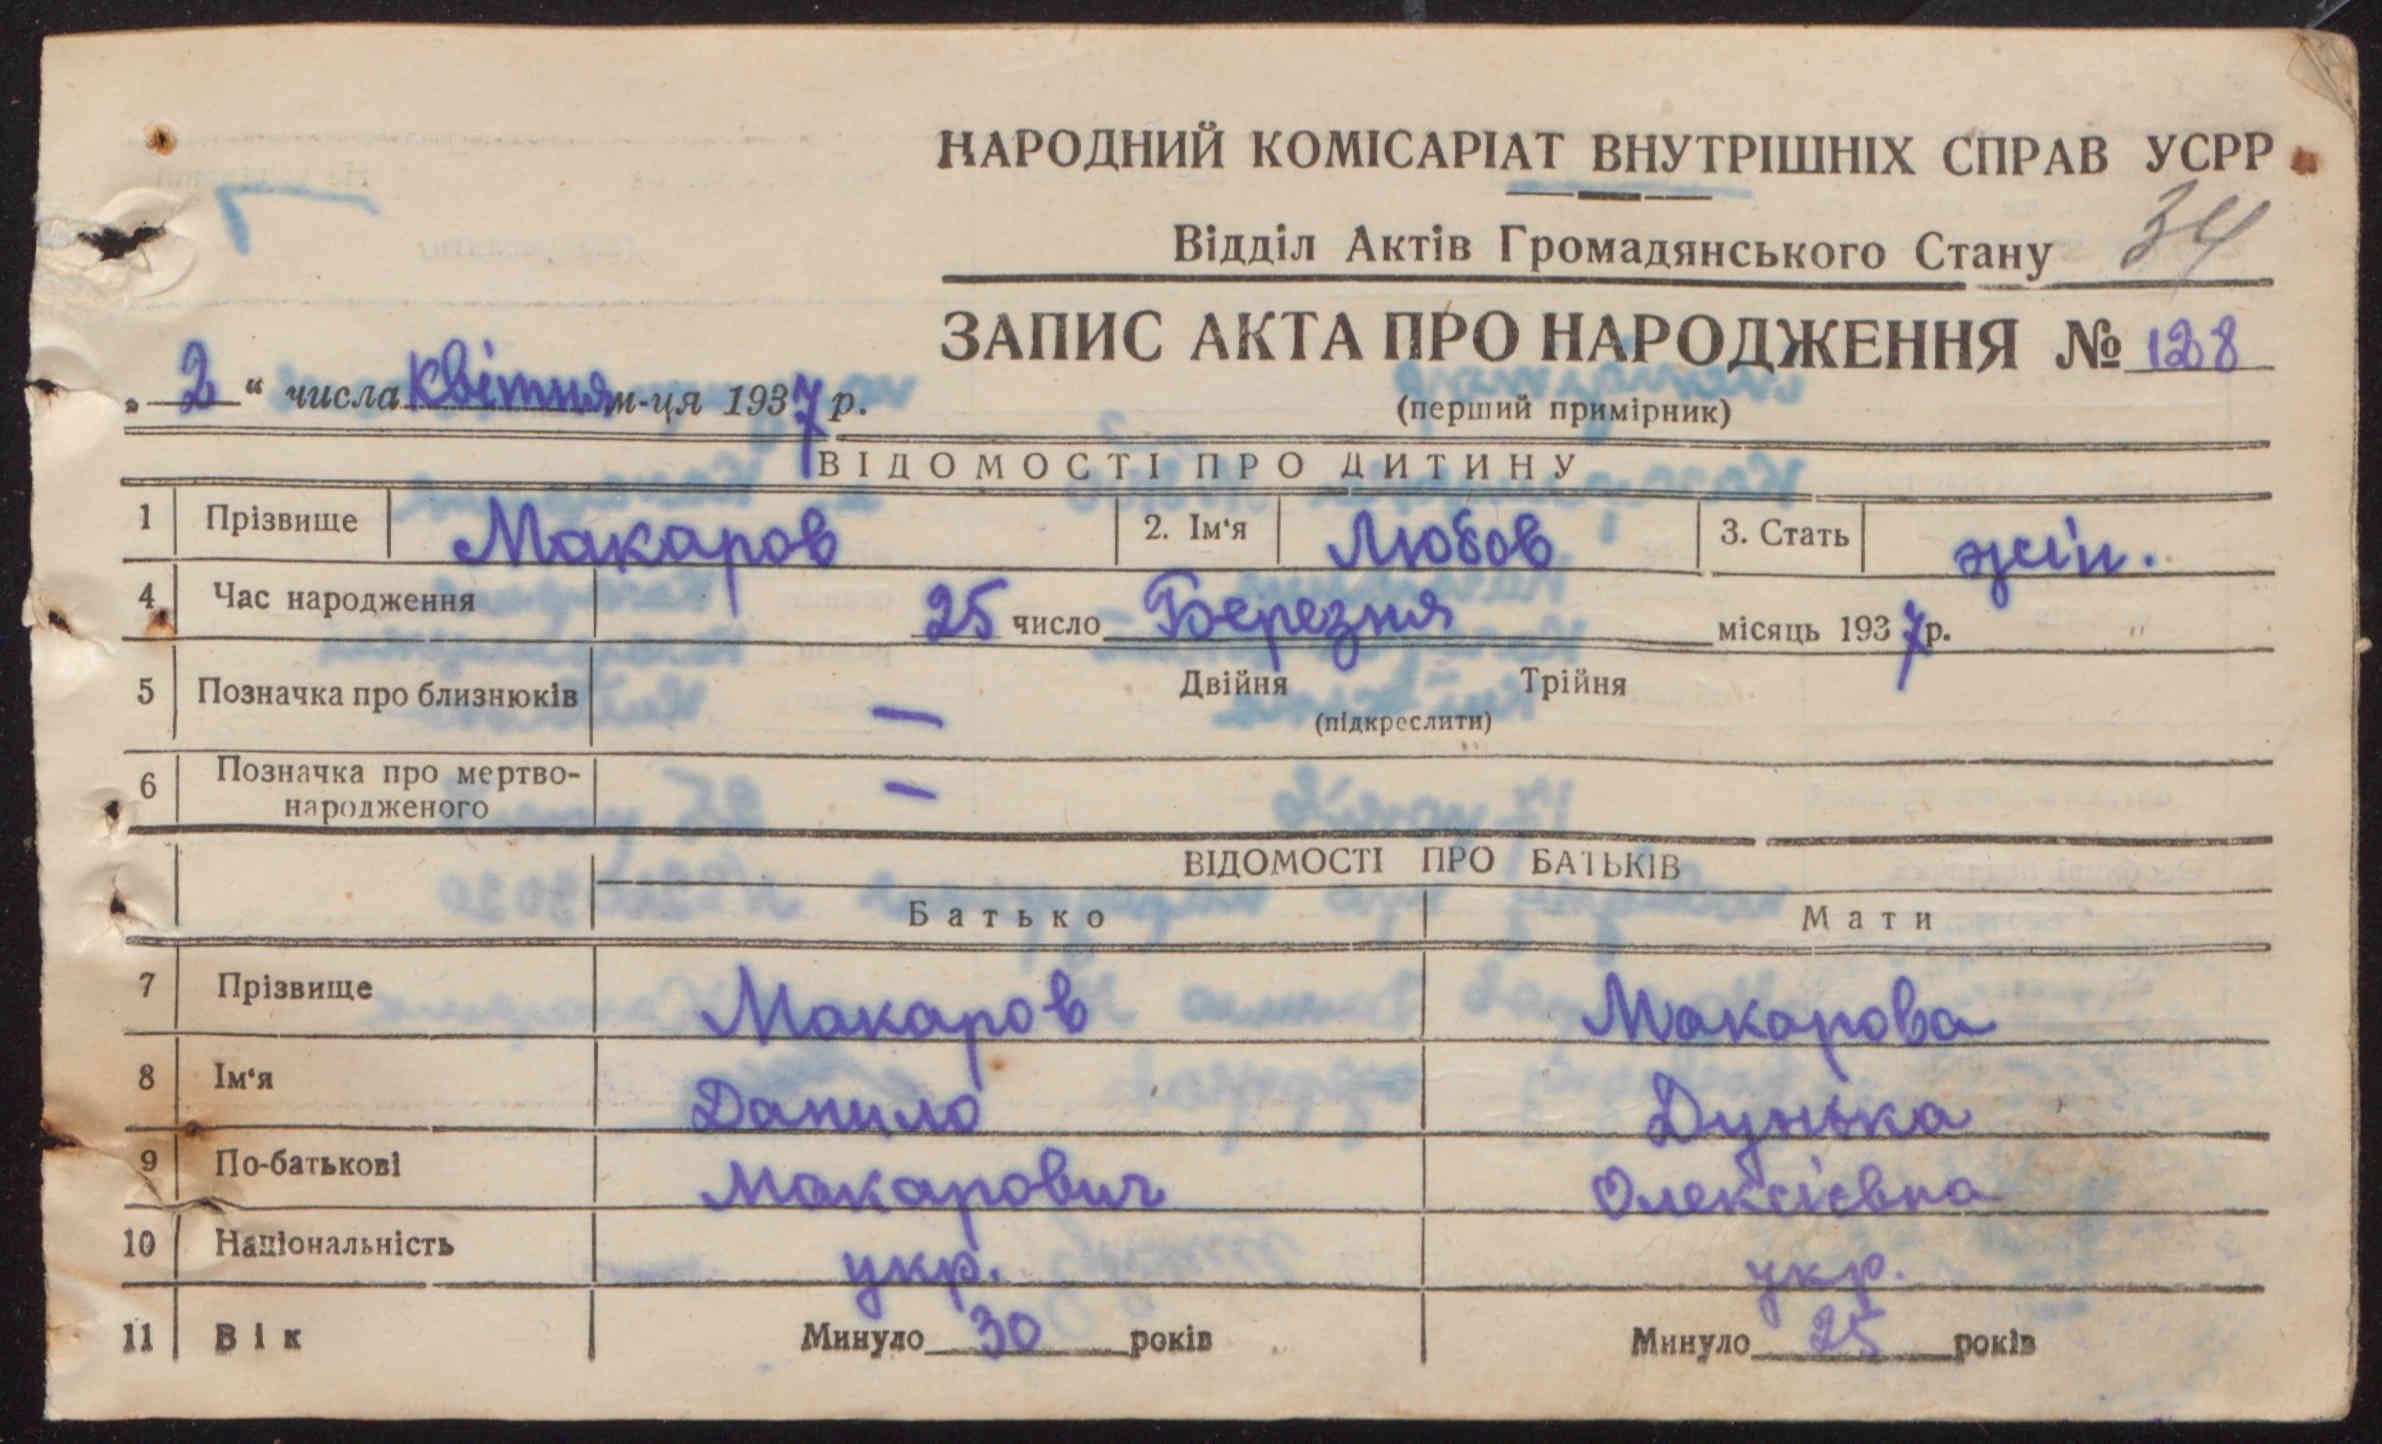 НАРОДНИЙ КОМІСАРІАТ ВНУТРІШНІХ СПРАВ УСРР
Відділ Актів Громадянського Стану 34
ЗАПИС АКТА ПРО НАРОДЖЕННЯ № 128
„ 2 “ числа Квітня м-ця 1937 р.
(перший примірник)
ВІДОМОСТІ ПРО ДИТИНУ
1 Прізвище Макаров 2. Ім‘я Любов 3. Стать жін.
4 Час народження 25 число Березня місяць 1937 р.
5 Позначка про близнюків — Двійня Трійня
(підкреслити)
6 Позначка про мертво-
народженого —
ВІДОМОСТІ ПРО БАТЬКІВ
Батько Мати
7 Прізвище Макаров Макарова
8 Ім‘я Данило Дунька
9 По-батькові Макарович Олексієвна
10 Національність укр. укр.
11 Вік Минуло 30 років Минуло 25 років